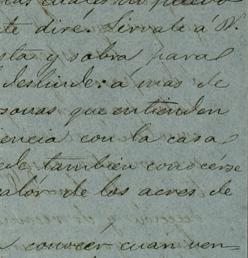 te dire. Sirvale á V.
sta y sobra para
deslinde: á mas de
sonas que entienden
encia con la casa
ede tambien conocerse
valor de los acres de
conocer cuan ven-